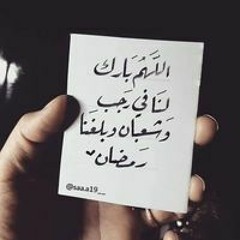 اللَّهُمَّ بَارك
لنَا في رَجب
وَشعبان وبلغنَا
رَمضان
@saa.a19__